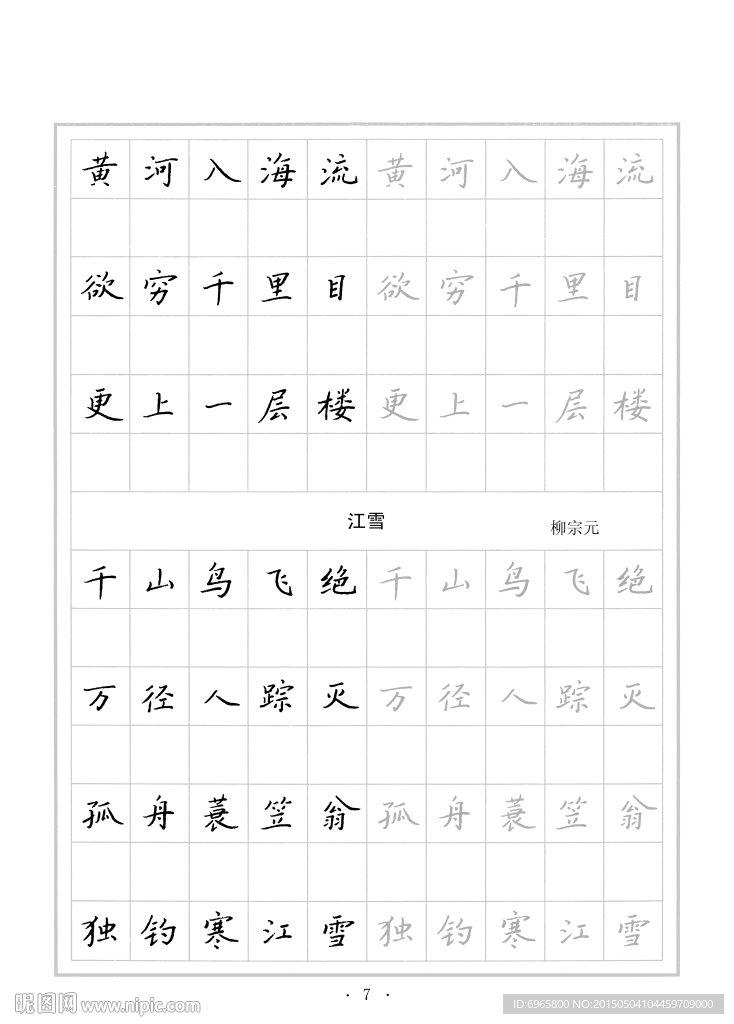 黄河入海流黄河入海流
欲穷千里目欲穷千里目
更上一层楼更上一层楼
江雪
柳宗元
千山鸟飞绝千山鸟飞绝
万径人踪灭万径人踪灭
孤舟蓑笠翁孤舟蓑笠翁
独钓寒江雪独钓寒江雪
· 7 ·
昵图网 www.nipic.com
ID:6965800 NO:20150504104459709000